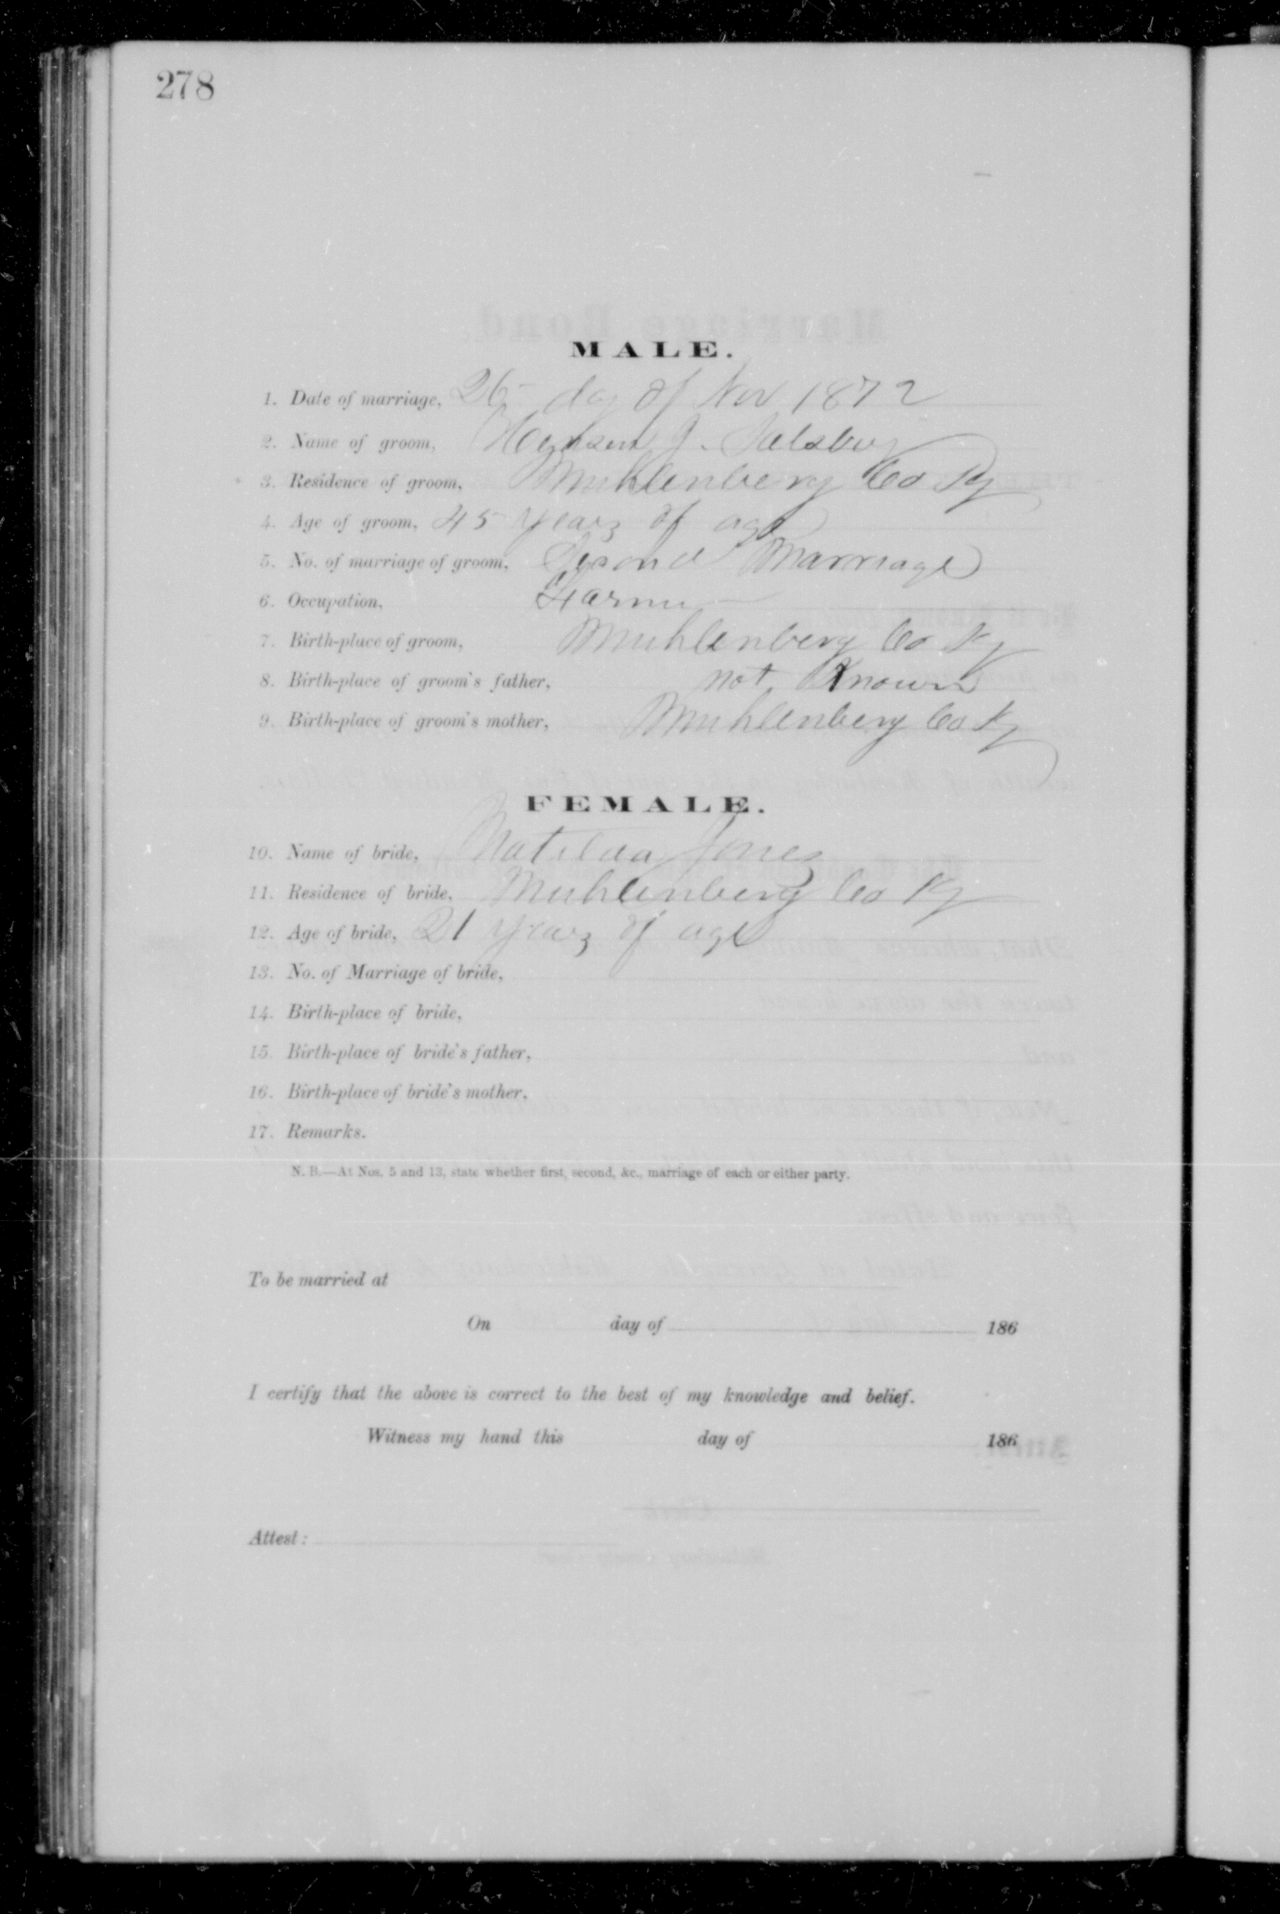 278
MALE.
1. Date of marriage, 26 day of Nov 1872
2. Name of groom, J. Salsbury
3. Residence of groom, Muhlenberg Co Ky
4. Age of groom, 45 years of age
5. No. of marriage of groom, Second Marriage
6. Occupation, Farmer
7. Birth-place of groom, Muhlenberg Co Ky
8. Birth-place of groom's father, not Known
9. Birth-place of groom's mother, Muhlenberg Co Ky
FEMALE.
10. Name of bride, Matilda Jones
11. Residence of bride, Muhlenberg Co Ky
12. Age of bride, 21 years of age
13. No. of Marriage of bride,
14. Birth-place of bride,
15. Birth-place of bride's father,
16. Birth-place of bride's mother,
17. Remarks.
N. B.—At Nos. 5 and 13, state whether first, second, &c., marriage of each or either party.
To be married at
On day of 186
I certify that the above is correct to the best of my knowledge and belief.
Witness my hand this day of 186
Attest: